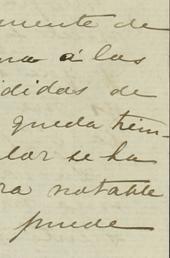 mente de
na á las
didas de
queda tém-
lor se ha
ra notable
puede